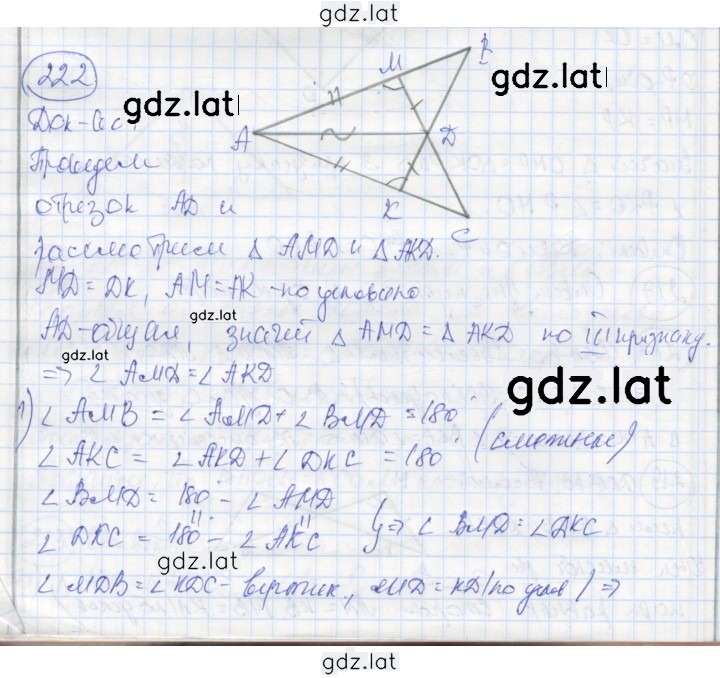 gdz.lat
222
gdz.lat
gdz.lat
A M B D K C
Док-во:
Проведем
отрезок AD и
рассмотрим Δ AMD и Δ AKD.
MD = DK, AM = AK - по условию
gdz.lat
AD - общая, значит Δ AMD = Δ AKD по III признаку.
gdz.lat
=> ∠ AMD = ∠ AKD
gdz.lat
1) ∠ AMB = ∠ AMD + ∠ BMD = 180° (смежные)
∠ AKC = ∠ AKD + ∠ DKC = 180°
∠ BMD = 180° - ∠ AMD
∠ DKC = 180° - ∠ AKC } => ∠ BMD = ∠ DKC
gdz.lat
∠ MDB = ∠ KDC - вертик., MD = KD (по услов) =>
gdz.lat